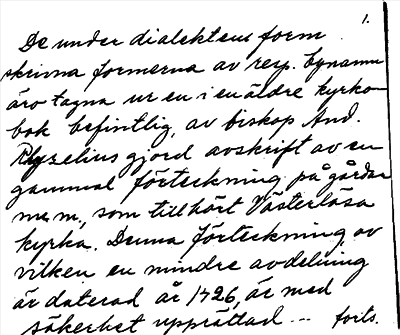 1.
De under dialektens form
skrivna formerna av resp. bynamn
äro tagna ur en i en äldre kyrko-
bok befintlig, av biskop And.
Rhyzelius gjord avskrift av en
gammal förteckning på gårdar
m.m., som tillhört Västerlösa
kyrka. Denna förteckning, av
vilken en mindre avdelning
är daterad år 1426, är med
säkerhet upprättad --- forts.